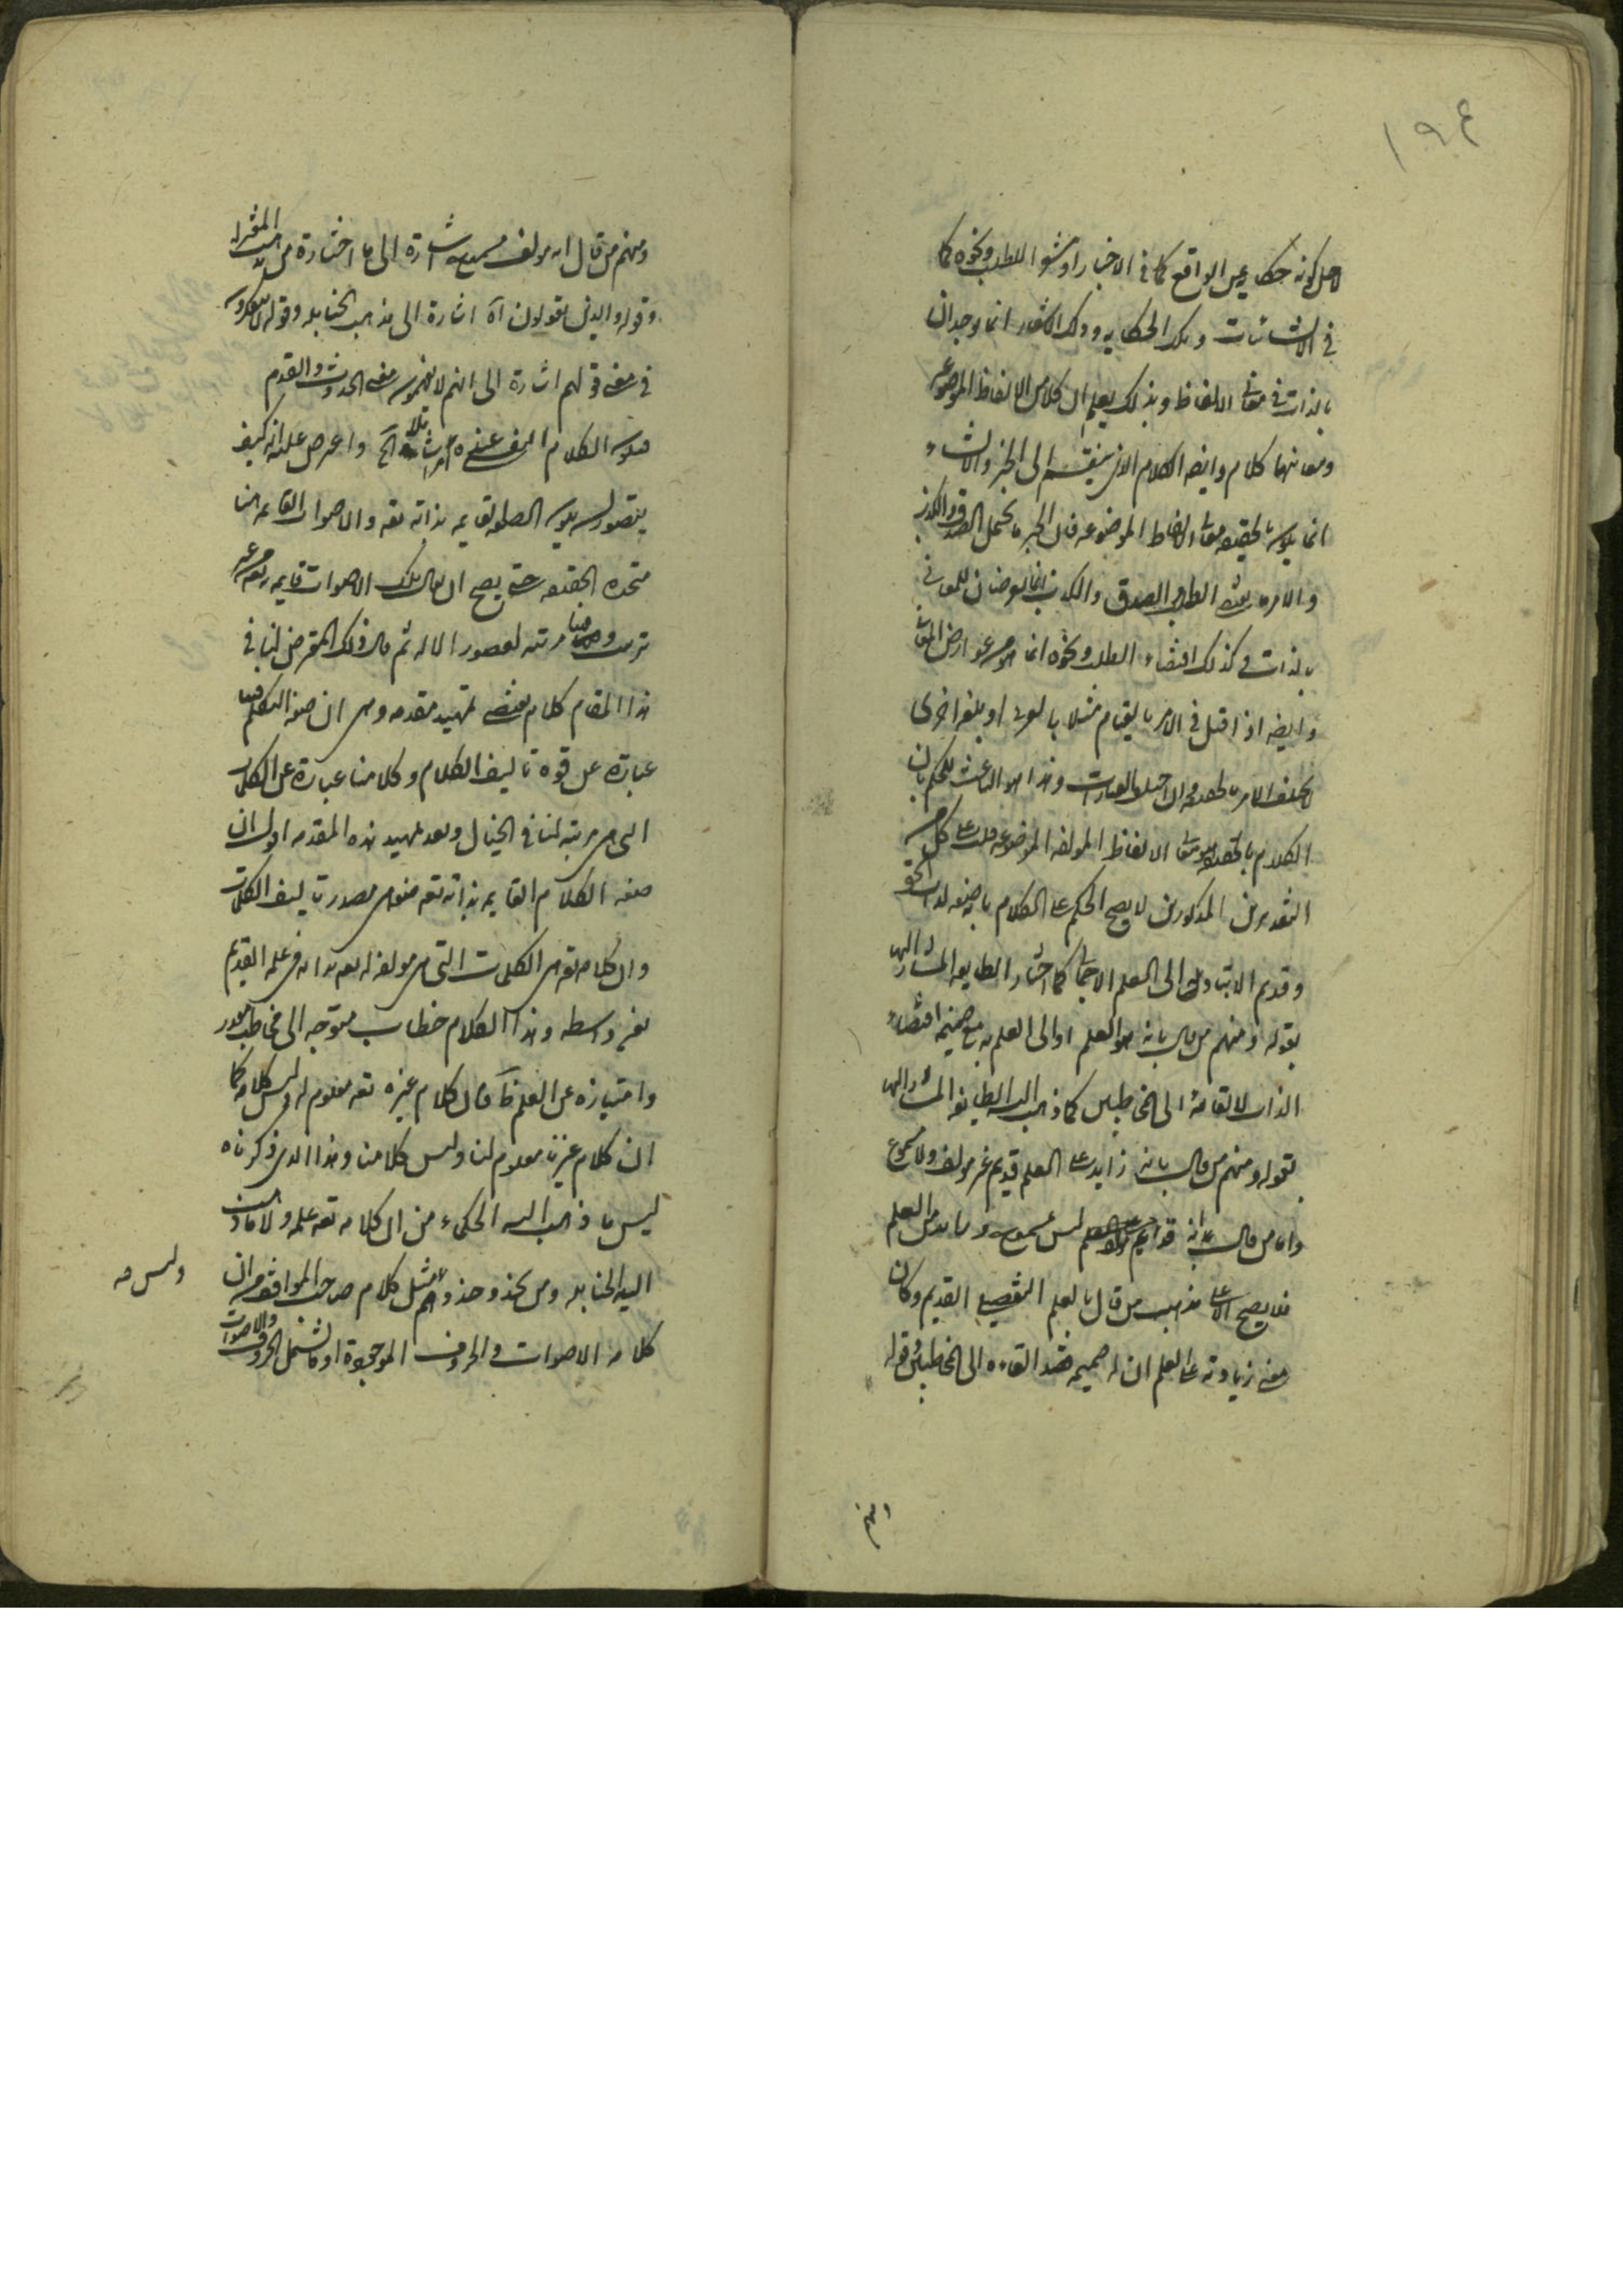 ١٩٤
لاجل كونه حكاية عن الواقع كما في الاخبار او مشوا للطلب ونحوه كما
في الانشائات وتلك الحكاية وذلك الاشعار انما يوجدان
بالذات في معاني الالفاظ وبذلك يعلم ان كلا من الالفاظ الموضوعة
ومعانيها كلام وايضا الكلام الذي ينقسم الى الخبر والانشاء
انما يكون بالحقيقة معاني الالفاظ الموضوعه فان الخبر ما يحتمل الصدق والكذب
والامر ما يقتضي الطلب والصدق والكذب انما يعرضان للمعاني
بالذات وكذلك اقتضاء الطلب ونحوه انما هو من عوارض المعاني
وايضا اذا قيل في الامر بالقيام مثلا بالعربي او بلغه اخرى
لا يختلف الامر بالحقيقة وان اختلف العبارات وهذا هو الباعث للحكم بان
الكلام بالحقيقة هو معاني الالفاظ المولفه الموضوعه وعلى كل من
التقديرين المذكورين لا يصح الحكم على الكلام بانه صفه لذات الحق
وقديم الا بتاويله الى العلم الاجمالي كما اختار الطايفه المشار اليها
بقوله ومنهم من قال بانه هو العلم او الى العلم به مع ضميمه اقتضاء
الذات لالقائه الى المخاطبين كما ذهب اليه الطايفه المشار اليها
بقوله ومنهم من قال بانه زايد على العلم قديم غير مولف ولا مسموع
واما من قال بانه قديم زايد على العلم ليس بمسموع وراء العلم
فلا يصح الا على مذهب من قال بالعلم التفصيلي القديم وكان
معنى زيادته على العلم ان له ضميمه قصد القاءه الى المخاطبين وقوله
ومنهم
ومنهم من قال انه مولف مسموع اشارة الى ما اختاره من مذهب المعتزله
وقوله والذين يقولون آه اشارة الى مذهب الحنابله وقوله لا يفكرون
في معنى قولهم اشارة الى انهم لا يفهمون معنى الحدوث والقدم
فيكون الكلام النفسي عنده امرا شاملا آخ واعترض عليه انه كيف
يتصور ان يكون الصوت قايم بذاته تعه والاصوات القائمة بنا
متحده الحقيقه حتى يصح ان يقال تلك الاصوات قايمه به تعه من غير
ترتب وهي فينا مرتبه لقصور الاله ثم قال ذلك المعترض لنا في
هذا المقام كلام يقتضي تمهيد مقدمه وهي ان صفة التكلم فينا
عبارة عن قوة تاليف الكلام وكلامنا عبارة عن الكلمات
التي هي مرتبة لنا في الخيال وبعد تمهيد هذه المقدمه اقول ان
صفه الكلام القايم بذاته تعه صفه هي مصدر تاليف الكلمات
وان كلامه تعه هي الكلمات التي هي مولفه له تعه بذاته في علمه القديم
بغير واسطه وهذا الكلام خطاب متوجه الى مخاطب مقدر
وامتيازه عن العلم ظاهر فان كلام غيره تعه معلوم له وليس كلامه كما
ان كلام غيرنا معلوم لنا وليس كلامنا وهذا الذي ذكرناه
ليس ما ذهب اليه الحكماء من ان كلامه تعه علمه ولا ما ذهبت
اليه الحنابله ومن يحذو حذوهم مثل كلام صاحب المواقف من ان
وليس مه
كلامه الاصوات والحروف الموجودة او ما يشمل الحروف والاصوات